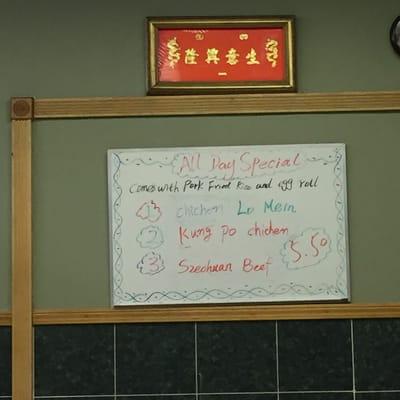 隆興意生
All Day Special
Comes with Pork Fried Rice and egg roll
1 chicken Lo Mein
2 Kung Po chicken
5.50
3 Szechuan Beef